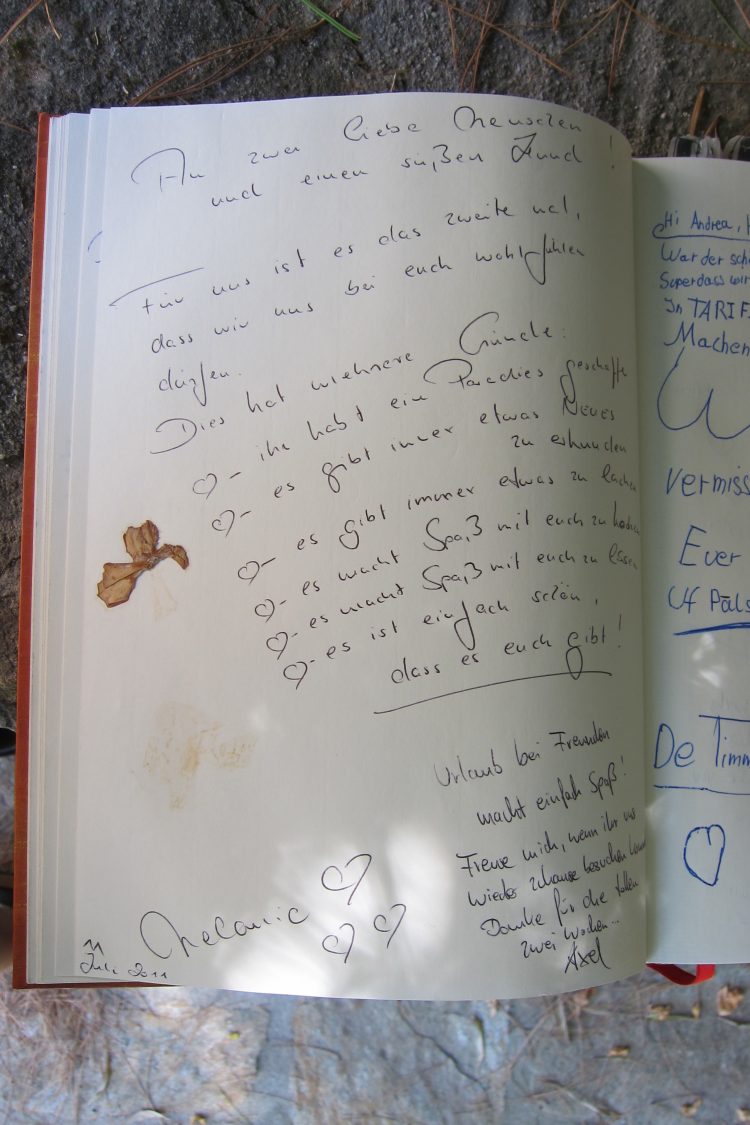 An zwei liebe Menschen
und einen süßen Hund!
Für uns ist es das zweite mal,
dass wir uns bei euch wohlfühlen
dürfen.
Dies hat mehrere Gründe:
♡- ihr habt ein Paradies geschaffen
♡- es gibt immer etwas NEUES
zu erkunden
♡- es gibt immer etwas zu lachen
♡- es macht Spaß mit euch zu
♡- es macht Spaß mit euch zu
♡- es ist einfach schön,
dass es euch gibt!
Urlaub bei Freunden
macht einfach Spaß!
Freue mich, wenn ihr uns
wieder zuhause besuchen kommt
Danke für die tollen
zwei Wochen...
Axel
Melanie
Juli 2011
Hi Andrea,
War der
Super dass wir
In TARIFA
Machen
vermiss
Ever
Uf Päls
De Timm